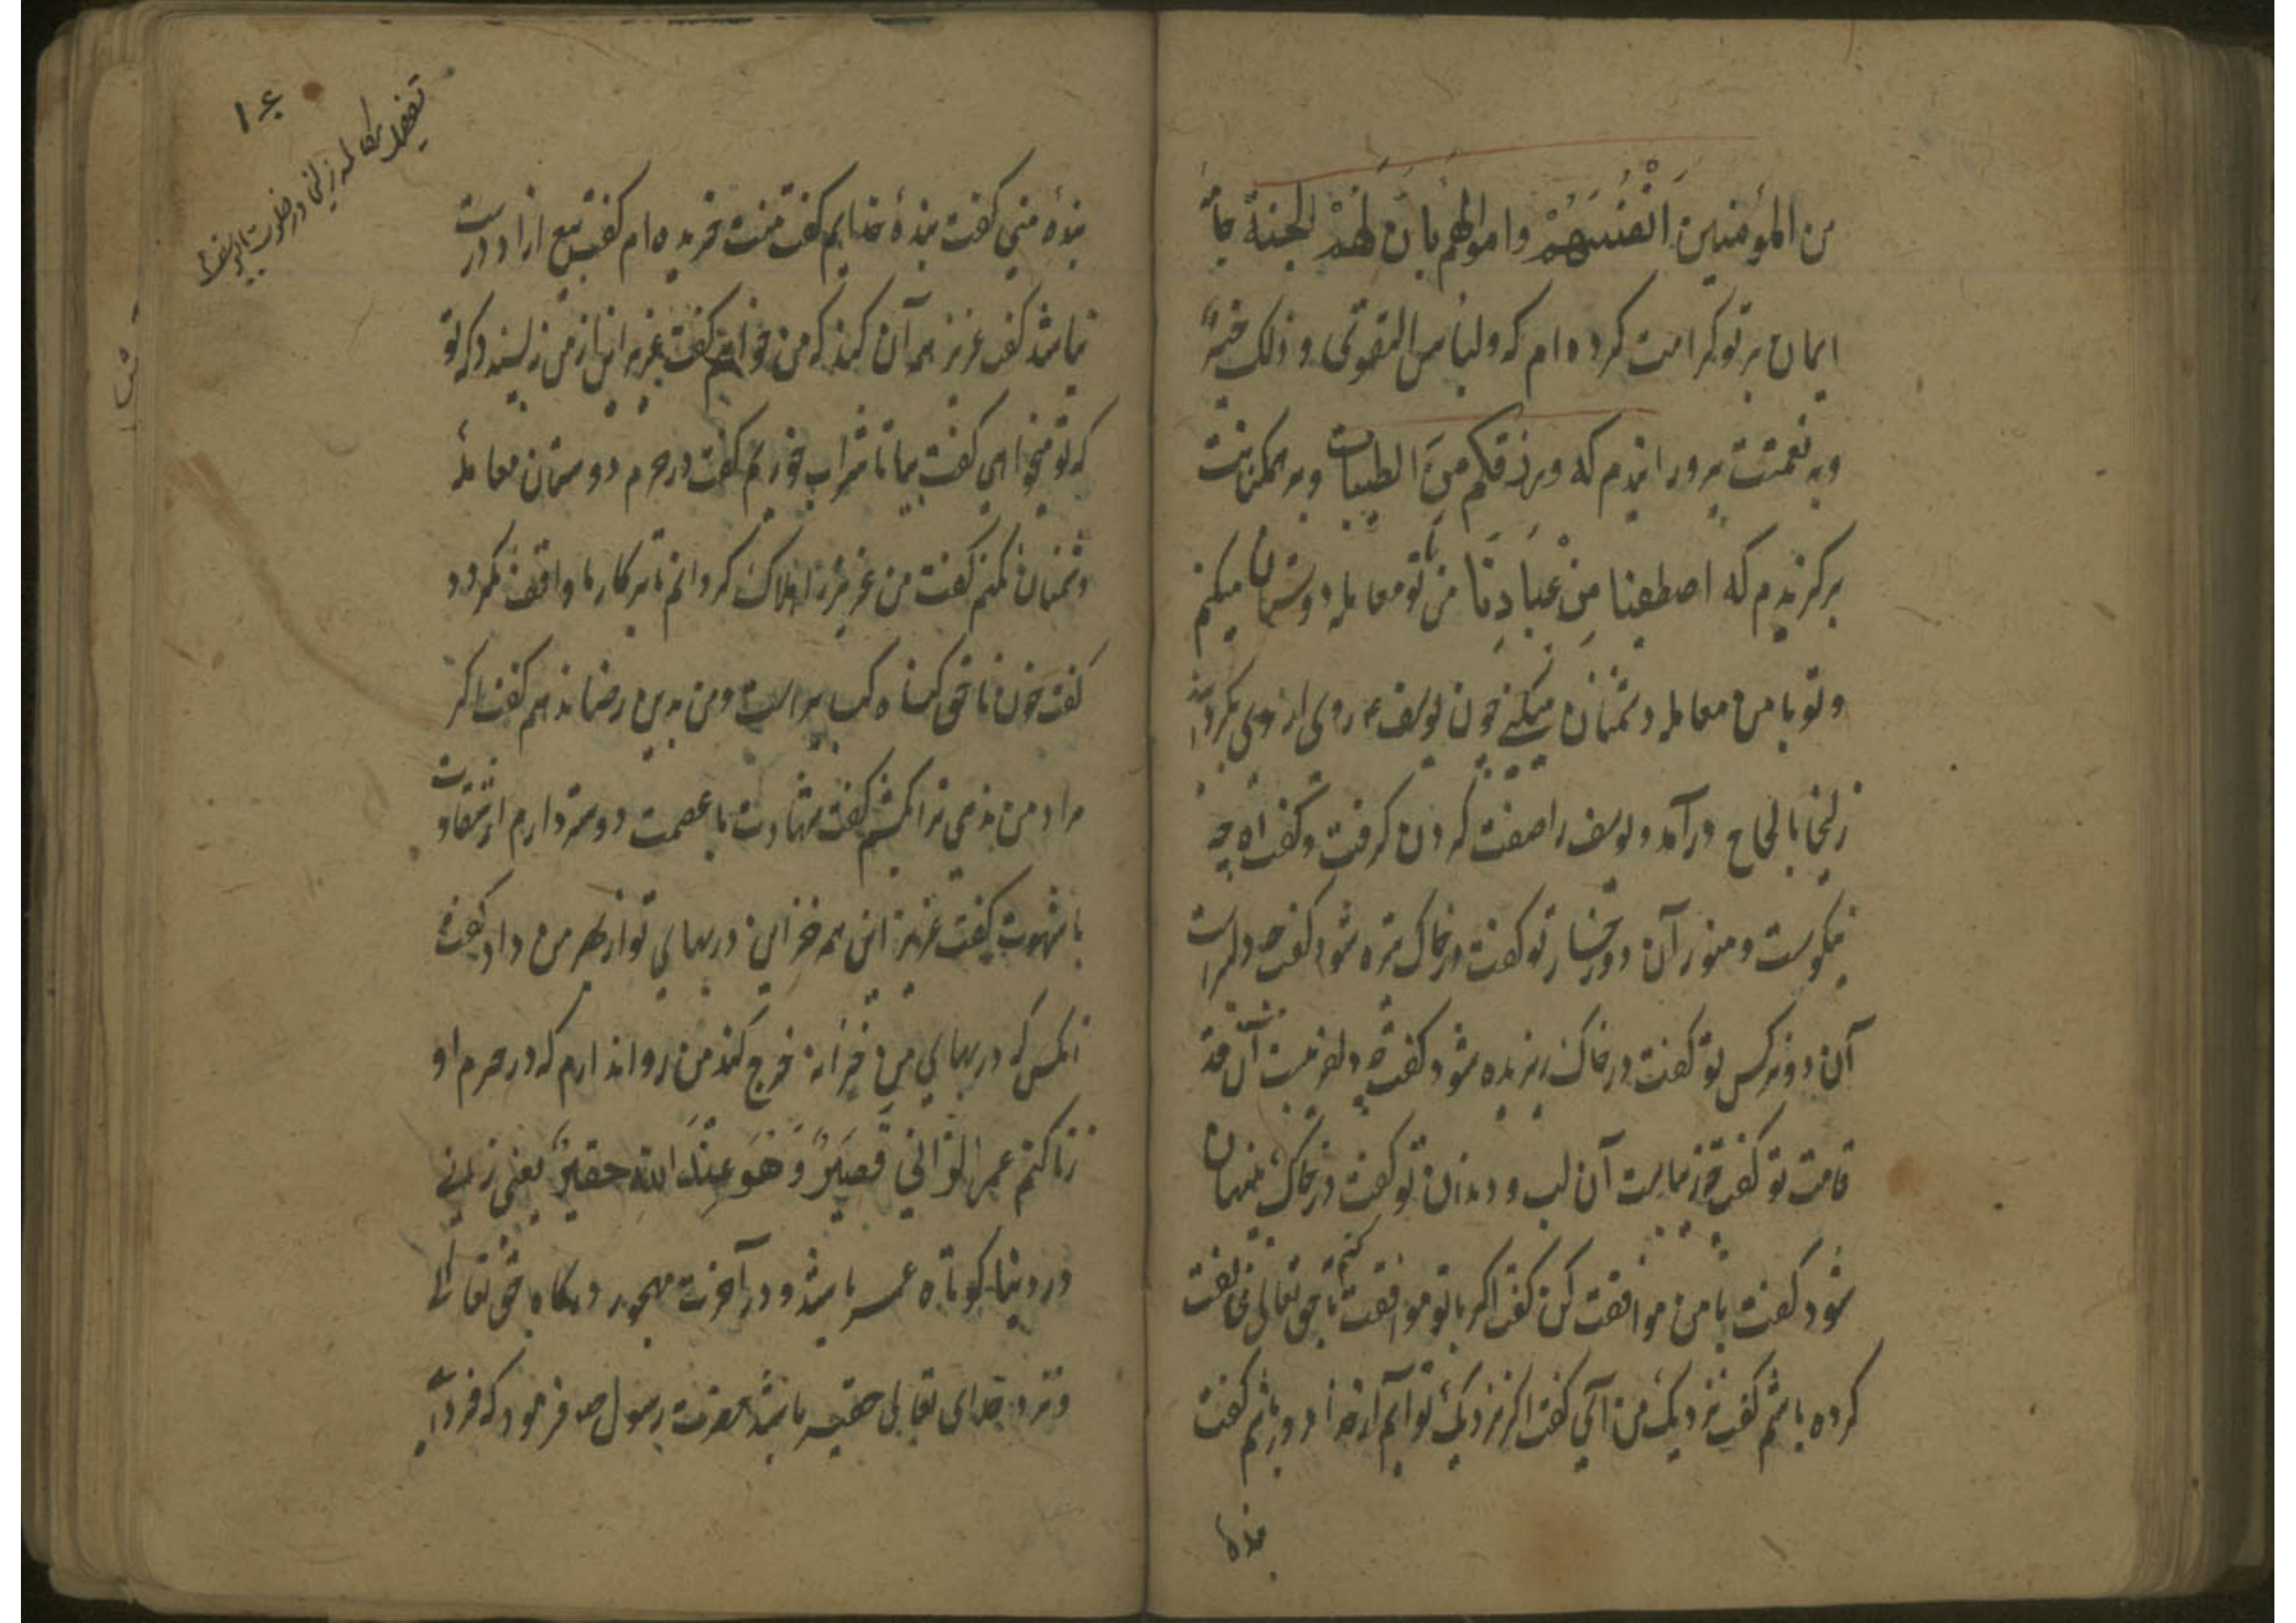 من المؤمنین اَنْفُسَهُمْ و اموالهم بان لَهُمْ الجنة
ایمان بر تو کرامت کرده ام که ولباس التقوی و ذلک خیرٌ
و به نعمتت پرورانیدم که ورزقکم مِنَ الطیبات و بر همکنانت
برکزیدم که اصطفینا مِنْ عِبَادِنَا من با تو معامله دوستان میکنم
و تو با من معامله دشمنان میکنی چون یوسف ع روی از وی بکردانید
زلیخا بالحاح درآمد و یوسف را صفت کردن کرفت و کفت اه چه
نیکوست و منور آن دو رخسار تو کفت در خاک تیره شود کفت چه دلبراست
آن دو نرکس تو کفت در خاک ریزیده شود کفت چه دلفریبست آن قد
قامت تو کفت چه زیباست آن لب و دندان تو کفت در خاک پنهان
شود کفت با من موافقت کن کفت اکر با تو موافقت کنم با حق تعالی مخالفت
کرده باشم کفت نزدیک من آئی کفت اکر نزدیک تو آیم از خدا دور باشم کفت
بنده
۱۶
تفصیل مکالمه زلیخا در خلوت با یوسف
بندهٔ منی کفت بندهٔ خدایم کفت منت خریده ام کفت بیع ازاد درست
نباشد کفت عزیز همه آن کند که من خواهم کفت عزیز این از من نه پسندد که تو
که تو میخواهی کفت بیا تا شراب خوریم کفت در حرم دوستان معامله
دشمنان نکنم کفت من عزیز را هلاک کردانم تا بر کار ما واقف نکردد
کفت خون ناحق کناه کبیر است و من بدین رضا ندهم کفت اکر
مراد من ندهی ترا بکشم کفت شهادت با عصمت دوستر دارم از شقاوت
با شهوت کفت عزیز این همه خزاین در بهای تو از بهر من داد کفت
انکس که در بهای من خزانه خرج کند من روا ندارم که در حرم او
زنا کنم عمر الزانی قَصِیرٌ وَ هُوَ عِنْدَ اللهِ حقیرٌ یعنی زانی
در دنیا کوتاه عمر باشد و در آخرت مهجور درکاه حق تعالی
و نزد خدای تعالی حقیر باشد حضرت رسول صه فرمود که فردا